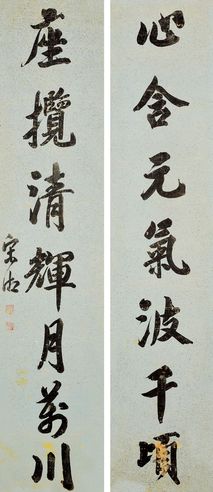 心含元氣波千頃
座攬清輝月萬川